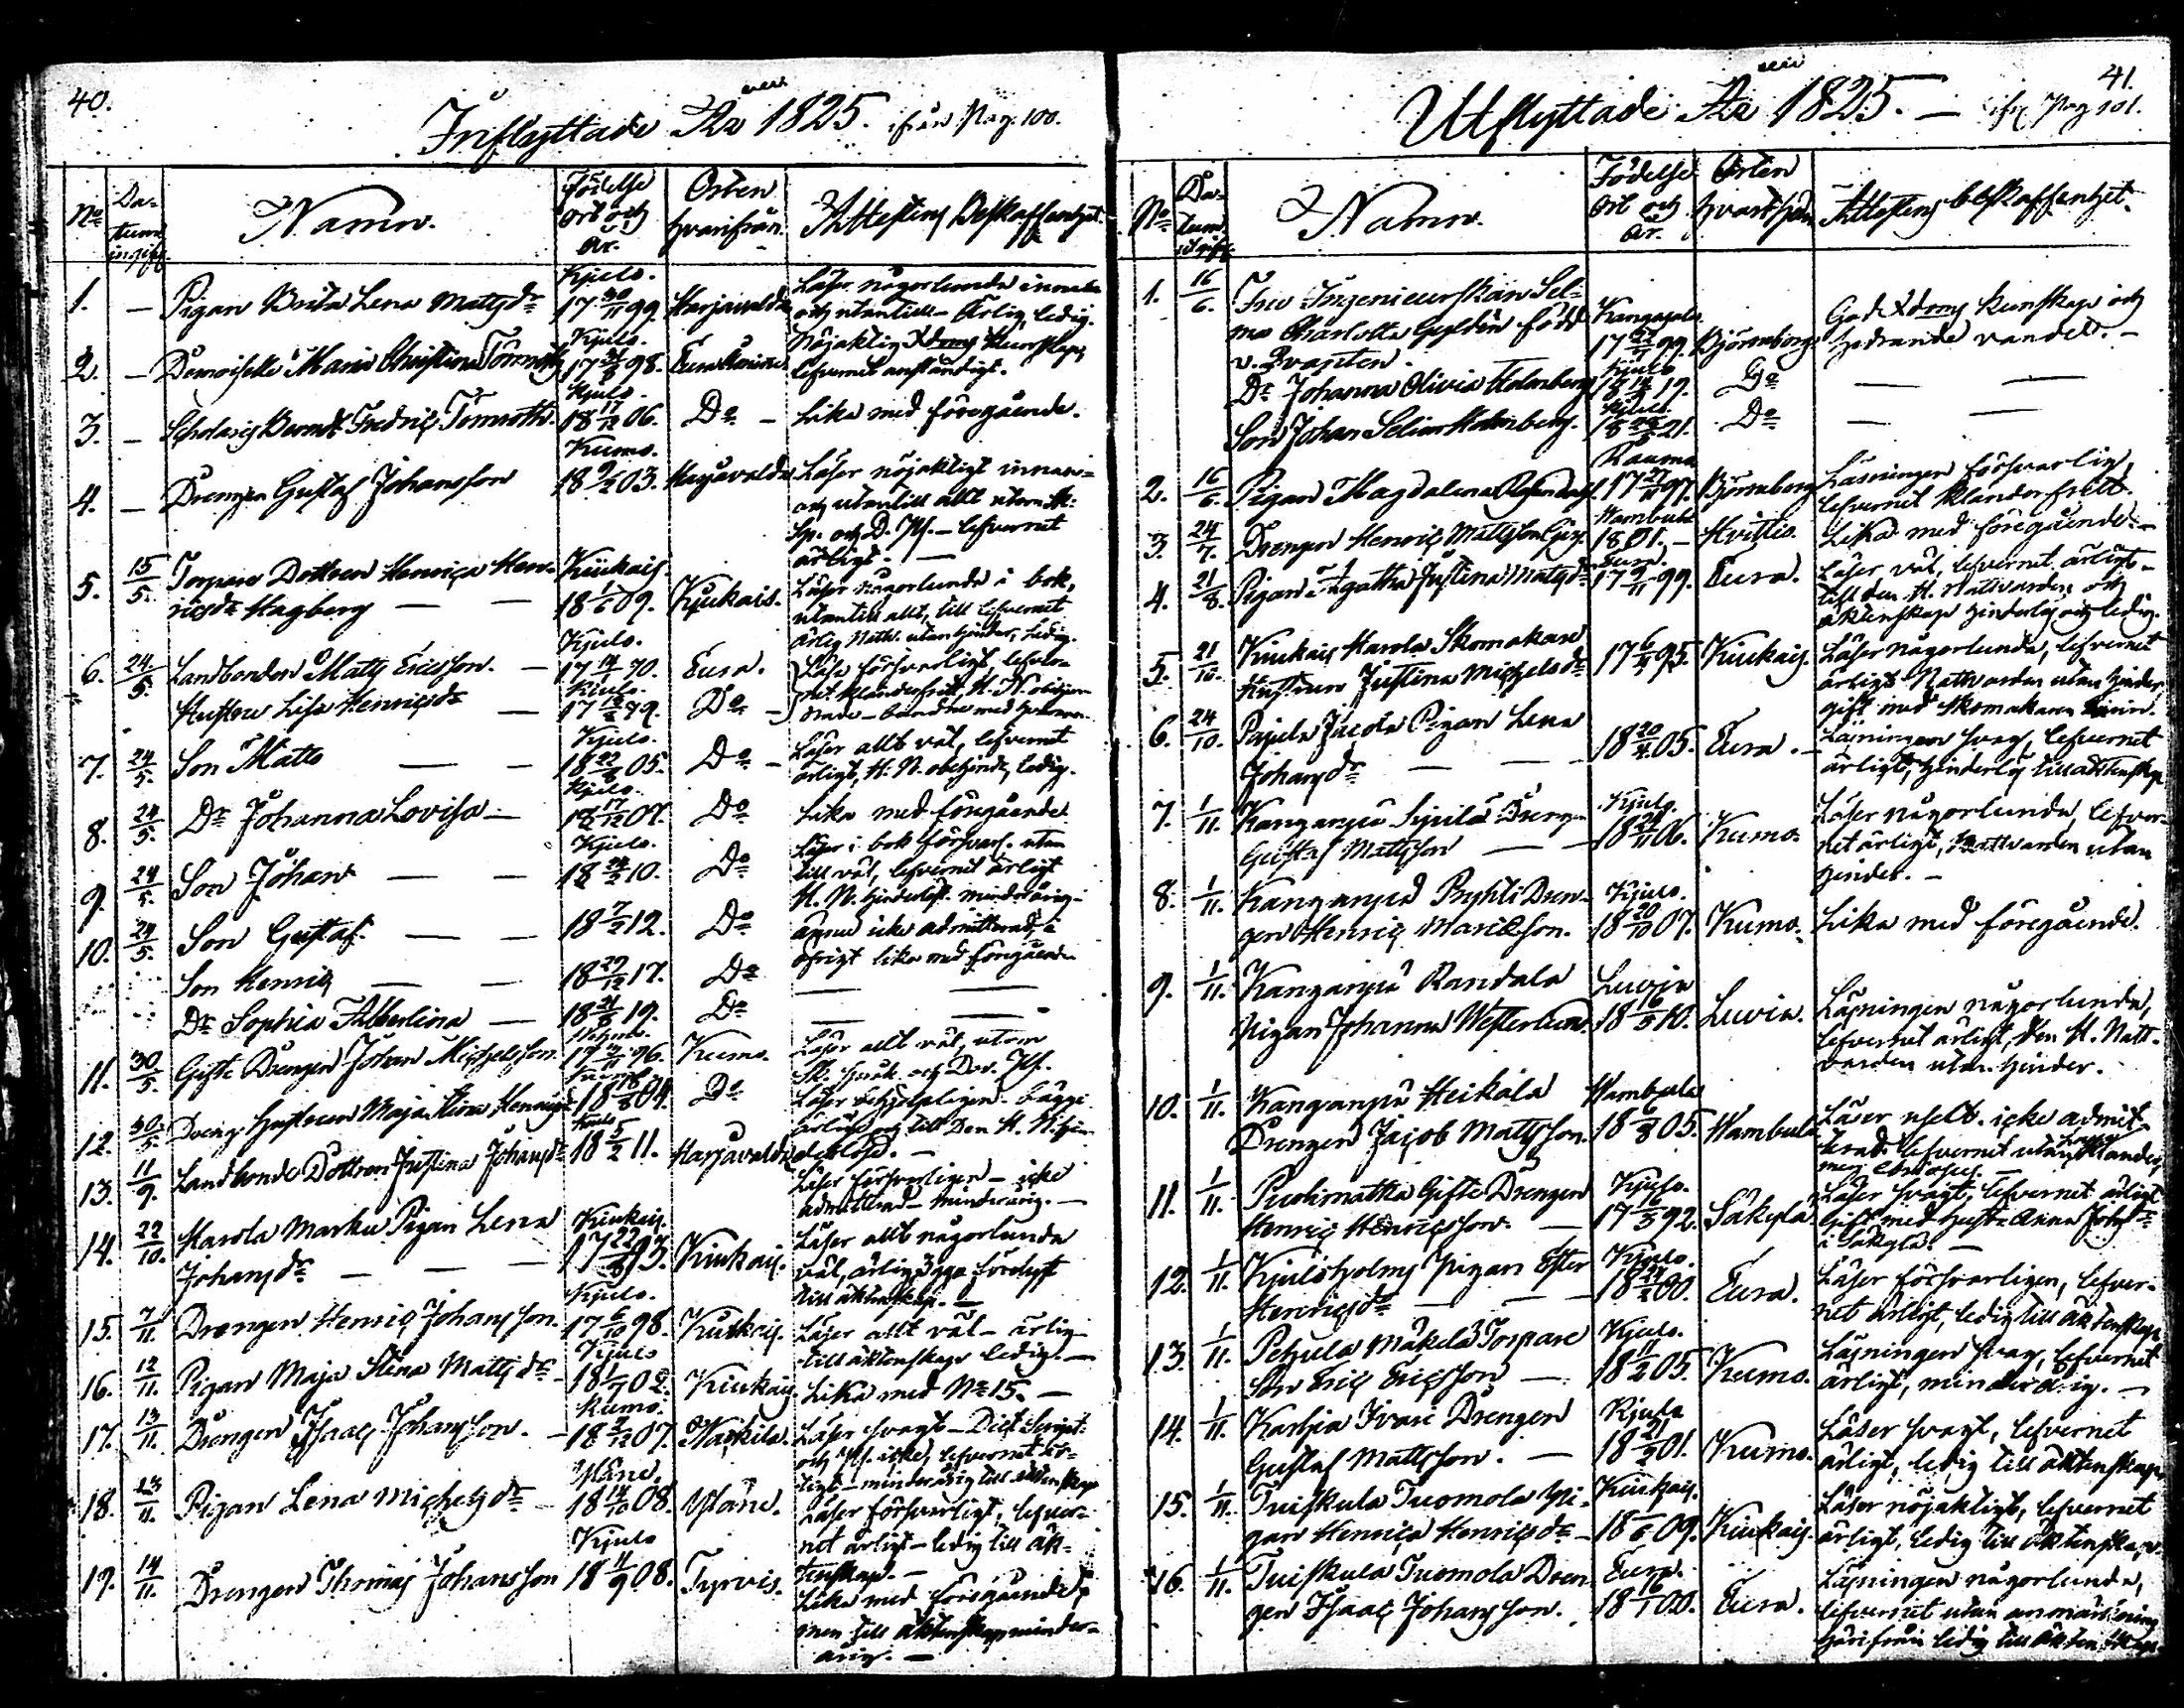 40.
Inflyttade År 1825. ifrån Pag. 100.
No
Da-
tum
Namn.
Födelse
ort och
År.
Orten
hvarifrån.
Attestens Beskaffenhet.
1. — Pigan Brita Lena Matsdr
Kjulo.
17 99. Harjavalda
Läser någorlunda innan
och utantill - Ärlig, ledig.
2. — Demoiselle Maria Christina Törnroth
Kjulo.
17 98.
Nöjaktig Xdoms Kunskap,
lefvernet anständigt.
3. — Scholaris Berndt Fredric Törnroth.
Kjulo
18 17/12 06. Do — Lika med föregående.
4. — Drengen Gustaf Johansson
Kumo.
18 9/2 03. Harjavalda
Läser nöjaktigt innan-
och utantill allt utom Sk.
Sp. och D. Ps. - lefvernet
ärligt. —
5. 15/5. Torpare Dottren Henrica Hen-
ricsdr Hagberg — —
Kiukais.
18 1/6 09. Kjukais.
Läser någorlunda i bok,
utantill allt, till lefvernet
ärlig Nattv. utan hinder, ledig.
6. 24/5. Landbonden Matts Ericsson. —
Kjulo.
17 70. Eura.
Läsa försvarligt, lefver-
net klanderfritt, H. N.
Hustrun Lisa Henricsdr —
Kjulo.
17 79. Do —
7. 24/5. Son Matts — —
Kjulo.
18 05. Do —
Läser allt väl, lefvernet
ärligt, H. N. obehindr. ledig.
8. 24/5. Dr Johanna Lovisa —
Kjulo.
18 17/12 07. Do
Lika med föregående
9. 24/5. Son Johan — —
Kjulo.
18 24/2 10. Do
Läser i bok försvarl. utan
till väl, lefvernet ärligt
H. N. minderårig
10. 24/5. Son Gustaf. — —
18 7/2 12. Do
ännu icke admitterad, i
öfrigt lika med föregående
Son Henric — —
18 29/12 17. Do — —
Dr Sophia Albertina —
18 19. Do — —
11. 30/5. Gifte Drengen Johan Michelsson.
17 96. Kumo.
Läser allt väl, utom
Sk. Språk och Dav. Ps.
12. 30/5. Dreng Hustrun Maja Stina Henricsdr
18 18/8 04. Do
Läser behjelpligen - bägge
ärliga och till Den H. N. hin-
derlöse. —
13. 11/9. Landbonde Dottren Justina Johansdr
18 5/2 11. Harjavalda
Läser försvarligen - icke
admitterad - minderårig. —
14. 22/10. Harola Marku Pigan Lena
Johansdr — — —
Kiukais.
17 93. Kiukais.
Läser allt någorlunda
väl, ärlig, förlyst
till äktenskap. —
15. 7/11. Drengen Henric Johansson.
Kjulo.
17 6/10 98. Kiukais.
Läser allt väl - ärlig
till äktenskap ledig. —
16. 12/11. Pigan Maja Stina Mattsdr —
Kjulo
18 02. Kiukais.
Lika med No 15. —
17. 13/11. Drengen Isaac Johansson. —
Kumo.
18 07.
Läser svagt - Dict. Script.
och Ps. icke, lefvernet är-
ligt - minderårig till äktenskap
18. 13/11. Pigan Lena Michelsdr —
Yläne.
18 14/10 08. Yläne.
Läser försvarligt, lefver-
net ärligt - ledig till äk-
tenskap. —
19. 14/11. Drengen Thomas Johansson
Kjulo
18 08. Tyrvis.
Lika med föregående,
men till äktenskap minder-
årig. —
41.
Utflyttade År 1825. — ifr. Pag 101.
No
Da-
tum
Namn.
Födelse
Ort och
År.
Orten
Attestens beskaffenhet.
1. 16/6. Fru Ingenieurskan Sel-
ma Charlotta Gyldén född
Kangasala
17 99. Björneborg.
God Xdoms kunskap och
hedrande vandel. —
Dr Johanna Olivia Holmberg
Kjulo
18 19. Do — —
Son Johan Selim Holmberg.
Kjulo.
18 21. Do — —
2. 16/6. Pigan Magdalena
Rauma
17 97. Björneborg
Läsningen försvarlig,
lefvernet klanderfritt.
3. 24/7. Drengen Henric Mattsson
Wambula
1801. — Hvittis.
Lika med föregående. —
4. 21/8. Pigan Agatha Justina Matsdr
Eura.
17 99. Eura.
Läser väl, lefvernet ärligt -
till den H. Nattvarden och
äktenskap hinderlös och ledig.
5. 21/10. Kiukais Harola Skomakare
Hustrun Justina Michelsdr
17 6/4 95. Kiukais.
Läser någorlunda, lefvernet
ärligt Nattvarden utan hinder,
gift med Skomakaren
6. 24/10. Pajula Jacola Pigan Lena
Johansdr — — —
18 20/4 05. Eura. —
Läsningen svag, lefvernet
ärligt, hinderlös till äktenskap
7. 1/11. Kanganpä Sipilä Drengen
Gustaf Mattsson — —
Kjulo.
18 06. Kumo.
Läser någorlunda, lefver-
net ärligt, Nattvarden utan
hinder. —
8. 1/11. Kanganpä Pryhti Dren-
gen Henric Maricsson.
Kjulo.
18 20/10 07. Kumo.
Lika med föregående.
9. 1/11. Kanganpä Randala
Pigan Johanna Westerlund.
Luvia
18 16/5 10. Luvia.
Läsningen någorlunda,
lefvernet ärligt, Den H. Natt-
varden utan hinder.
10. 1/11. Kanganpä Heikälä
Drengen Jacob Mattsson.
Wambula
18 6/8 05. Wambula
Läser uselt. icke admit-
terad. lefvernet utan klander,
11. 1/11. Puolimatka Gifte Drengen
Henric Henricsson. —
Kjulo.
17 6/3 92. Säkylä.
Läser svagt, lefvernet ärligt
Gift med Hustr. Anna Johsdr
i Säkylä. —
12. 1/11. Kjuloholms Pigan Ester
Henricsdr — — —
Kjulo.
18 24/2 00. Eura.
Läser försvarligen, lefver-
net ärligt, ledig till äktenskap
13. 1/11. Pehula Mäkelä Torpare
Son Eric Ericsson —
Kjulo.
18 11/2 05. Kumo.
Läsningen svag, lefvernet
ärligt, minderårig. —
14. 1/11. Karhia Ivari Drengen
Gustaf Mattsson. —
Kjulo
18 21/2 01. Kumo.
Läser svagt, lefvernet
ärligt, ledig till äktenskap
15. 1/11. Tuiskula Tuomola Pi-
gan Henrica Henricsdr —
Kiukais.
18 1/6 09. Kiukais.
Läser nöjaktigt, lefvernet
ärligt, ledig till äktenskap.
16. 1/11. Tuiskula Tuomola Dren-
gen Isaac Johansson.
Eura.
18 16/1 00. Eura.
Läsningen någorlunda,
lefvernet utan anmärkning
härifrån ledig till äktenskap.